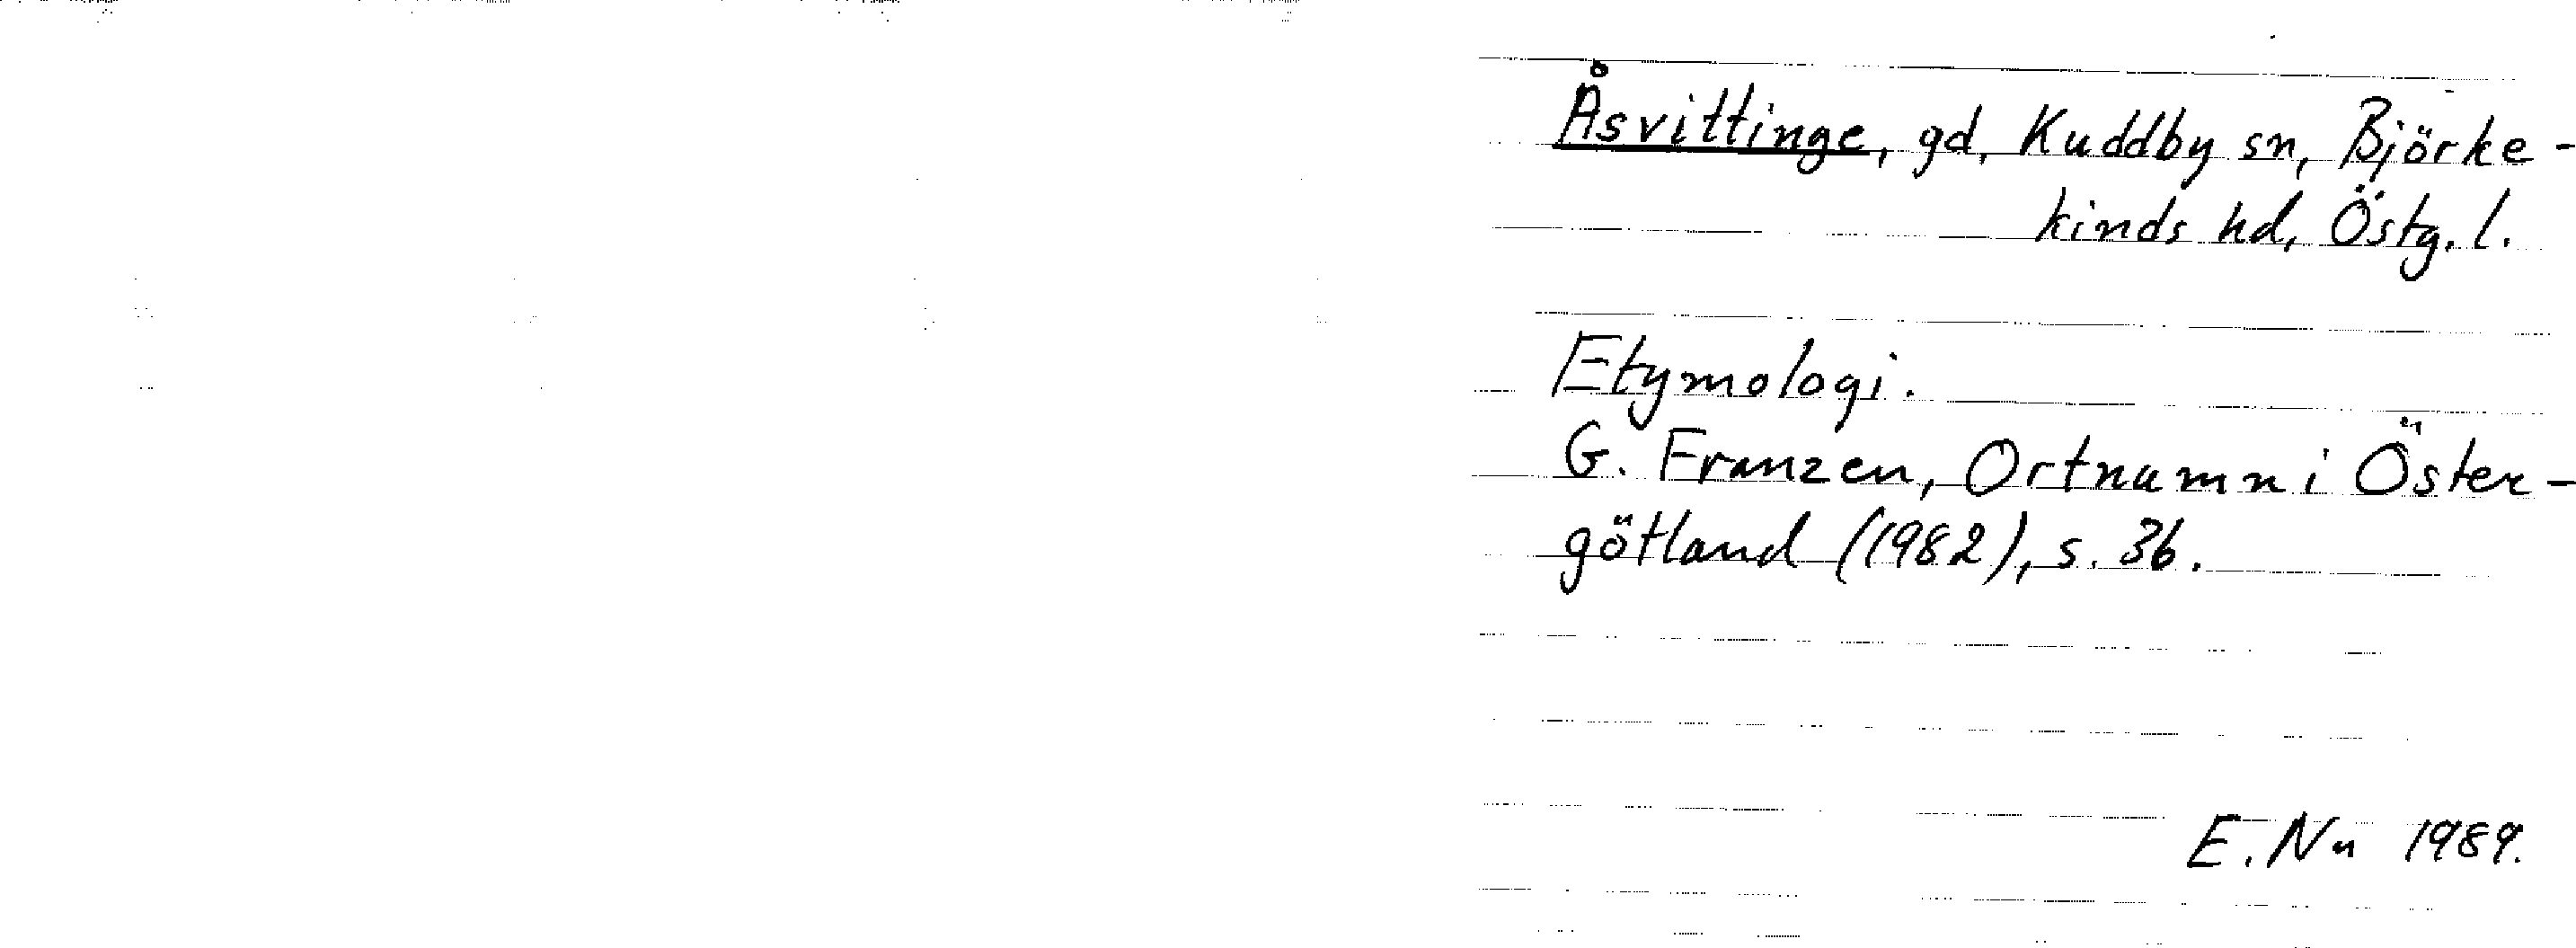 Åsvittinge, gd, Kuddby sn, Björke-
kinds hd, Östg. l.
Etymologi.
G. Franzen, Ortnamn i Öster-
götland (1982), s. 36.
E. Nn 1989.